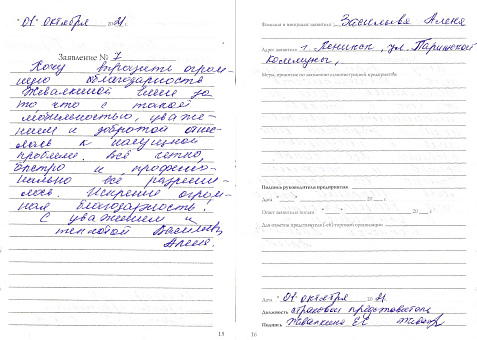 "01" октября 2021.
Заявление № 7
Хочу выразить огром-
ную благодарность
Жевалкиной Елене за
то что с такой
уваже-
нием и добротой отне-
лась к насущной
проблеме. Всё четко,
быстро и професси-
нально всё разреши-
лось. Искренне огром-
ная благодарность!
С уважением и
теплотой Васильева
Алена.
15
Фамилия и инициалы заявителя Васильева Алена
Адрес заявителя г. Ленинск, ул. Парижской
Коммуны,
Меры, принятые по заявлению администрацией предприятия:
Подпись руководителя предприятия
Дата " " 20 г.
Ответ заявителю послан " " 20 г.
Для отметок представителя (-ей) торговой организации
Дата "01" октября 2021
Должность страховой представитель
Подпись Жевалкина ЕЕ
16